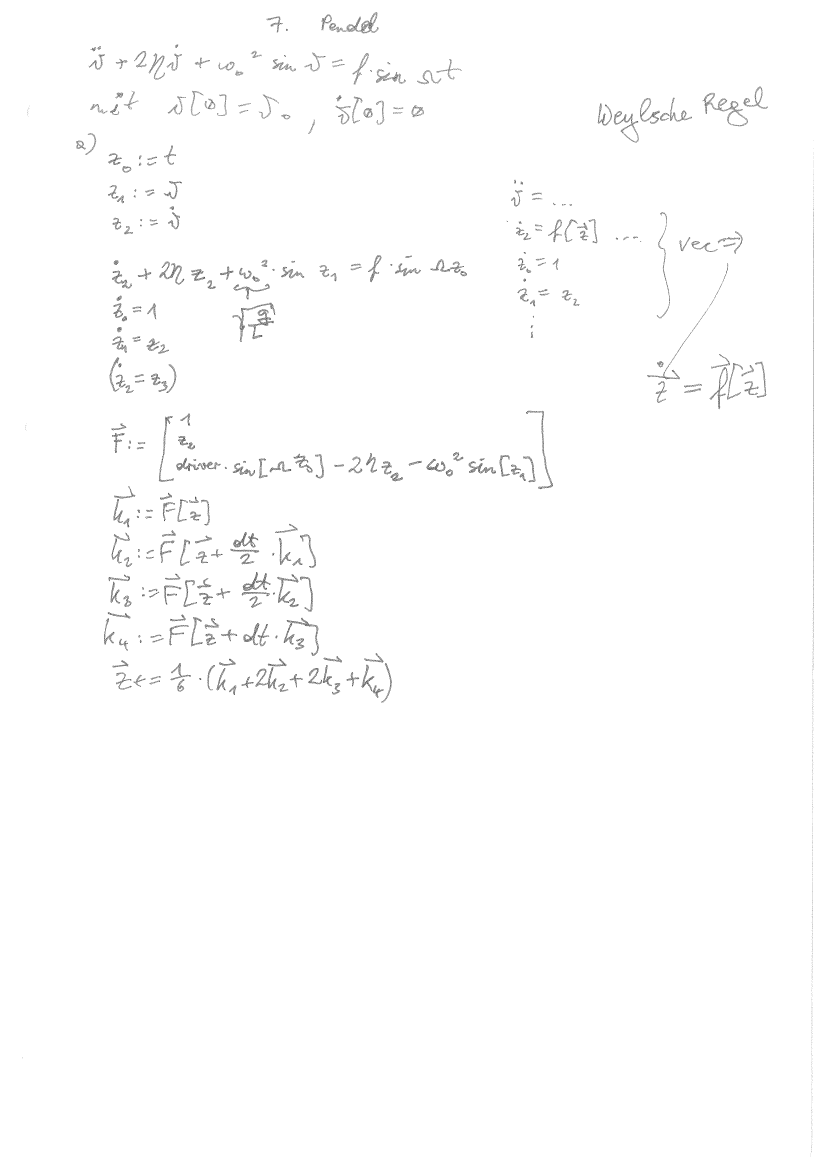 7. Pendel
ϑ̈ + 2ηϑ̇ + ω₀² sin ϑ = f · sin Ωt
mit ϑ[0] = ϑ₀ , ϑ̇[0] = 0
Weylsche Regel
a)
z₀ := t
z₁ := ϑ
z₂ := ϑ̇
ż₂ + 2η z₂ + ω₀² · sin z₁ = f · sin Ωz₀
√(g/L)
ż₀ = 1
ż₁ = z₂
(ż₂ = z₃)
ϑ̈ = ...
ż₂ = f[z⃗] ...
ż₀ = 1
ż₁ = z₂
⋮
} vec ⇒
z⃗̇ = f⃗[z⃗]
F⃗ := [ 1
z₂
driver · sin[Ω z₀] − 2η z₂ − ω₀² sin[z₁] ]
k⃗₁ := F⃗[z⃗]
k⃗₂ := F⃗[z⃗ + dt/2 · k⃗₁]
k⃗₃ := F⃗[z⃗ + dt/2 · k⃗₂]
k⃗₄ := F⃗[z⃗ + dt · k⃗₃]
z⃗ += 1/6 · (k⃗₁ + 2k⃗₂ + 2k⃗₃ + k⃗₄)